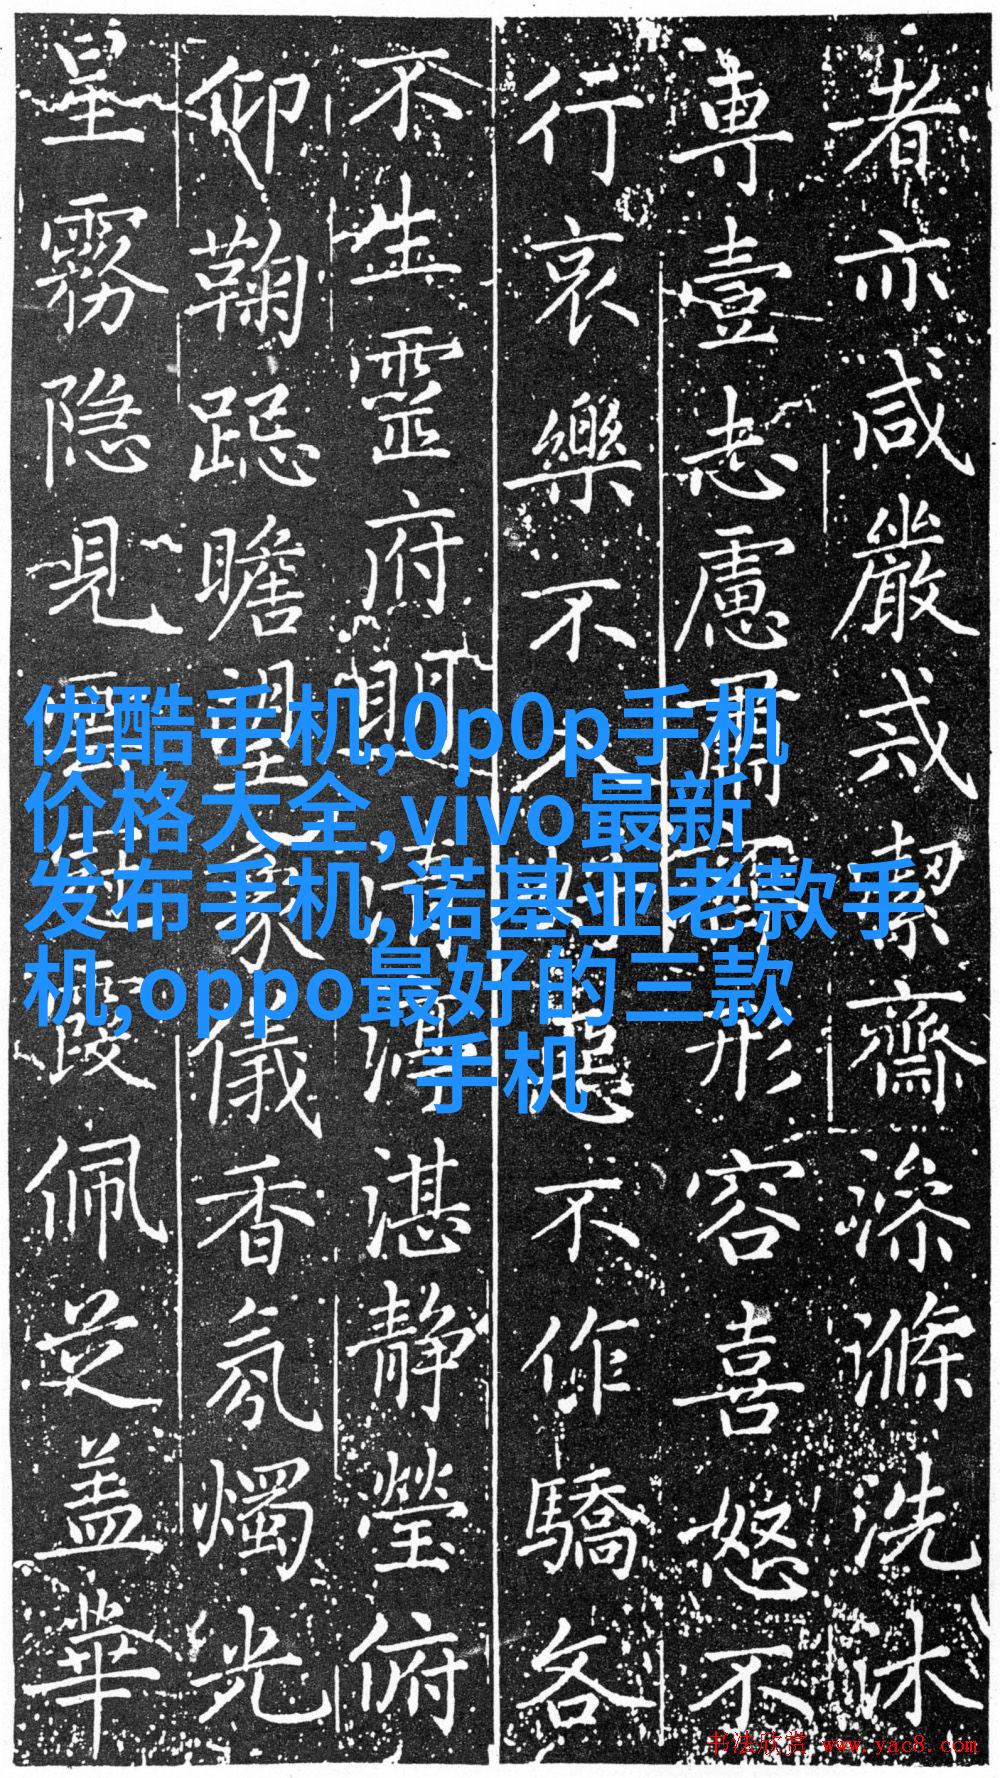 者亦咸嚴戒絜齋澡滌洗沐
専壹志慮形容喜怒不
行哀樂不入不作驕各
不生靈府清湛静瑩俯
仰鞠跽瞻望象儀香氛燭光
星霧隐見霞佩芝盖華
优酷手机,0p0p手机
价格大全,vivo最新
发布手机,诺基亚老款手
机,oppo最好的三款
手机
书法欣赏 www.yac8.com